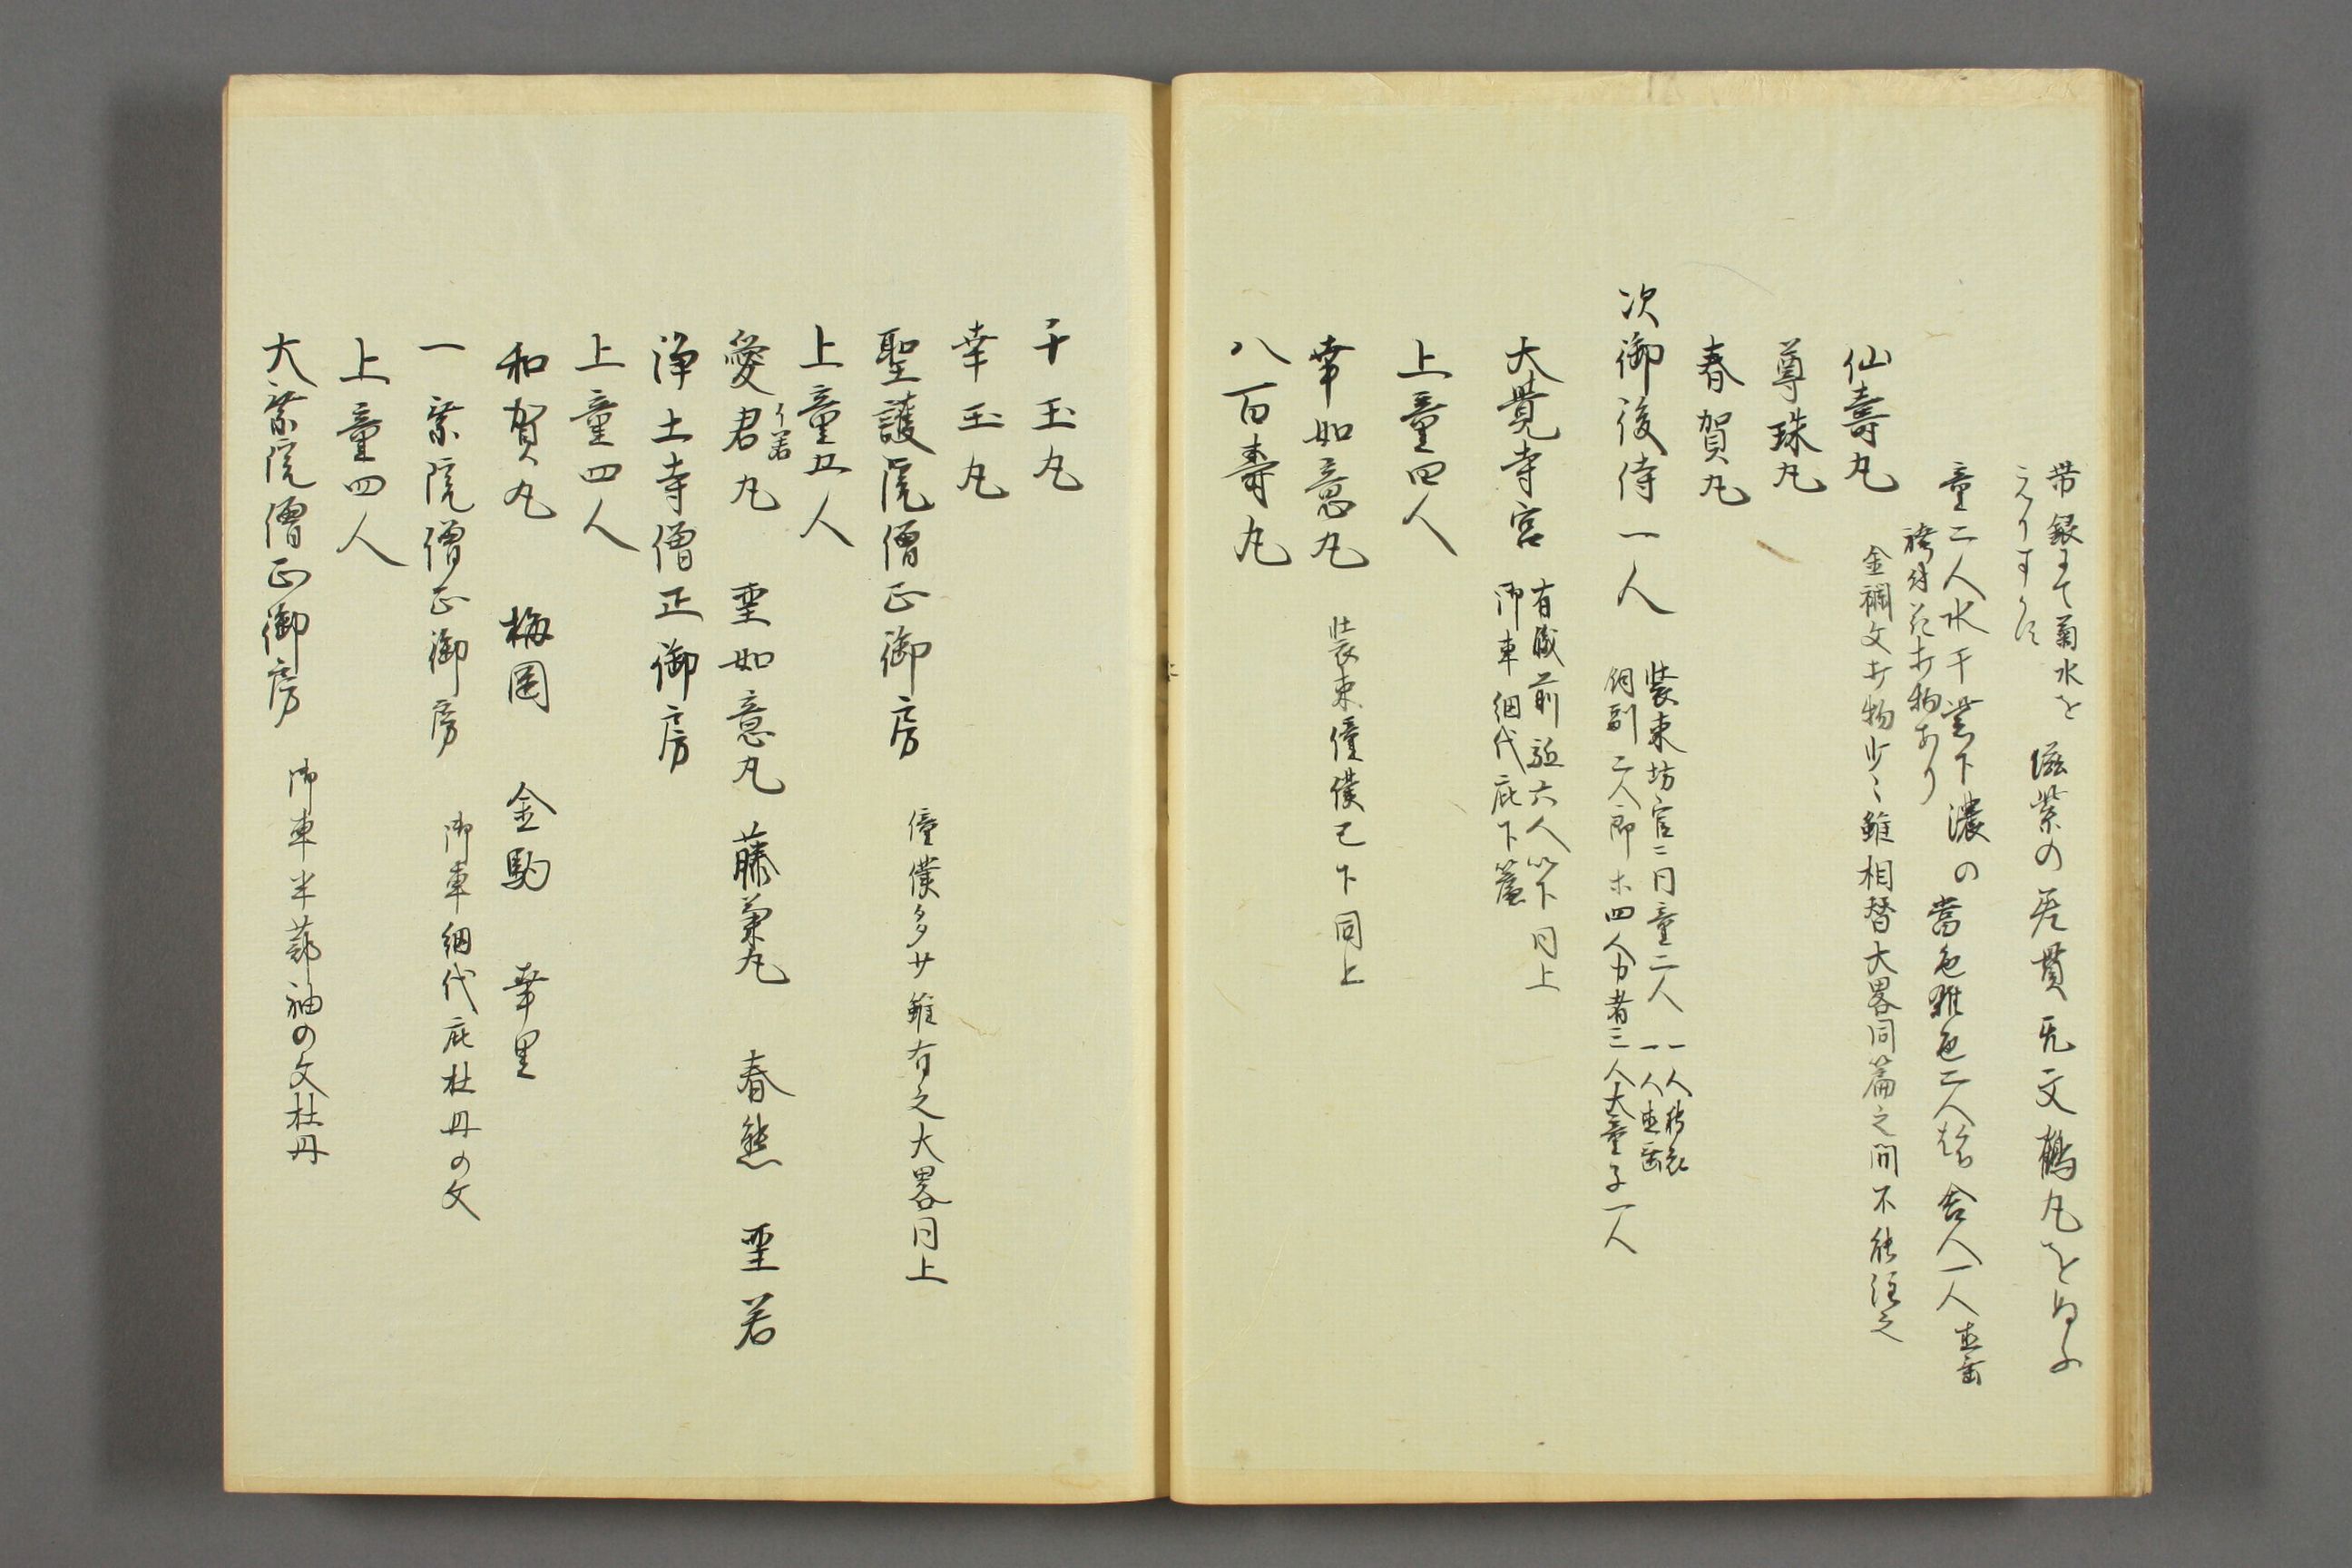 帯銀にて菊水を
えりすかす
滋紫の差貫元文鶴丸をぬふ
童二人水干裳下濃の
袴付花打物あり
當色雑色二人 舎人一人直垂
仙壽丸
金襴文打物少々雖相替大畧同篇之間不能注之
尊珠丸
春賀丸
次御後侍一人
装束坊官ニ同童二人
一人狩衣
一人直垂
飼副二人郎ホ四人力者三人大童子一人
大覺寺宮
有職前駈六人以下同上
御車網代庇下簾
上童四人
幸如意丸 装束僮僕已下同上
八百壽丸
千玉丸
幸玉丸
聖護院僧正御房 僮僕多少雖有之大畧同上
上童五人
愛君丸 聖如意丸 藤菊丸 春熊 聖若
イ若
浄土寺僧正御房
上童四人
和賀丸 梅国 金駒 幸里
一乗院僧正御房 御車網代庇杜丹の文
上童四人
大乗院僧正御房 御車半蔀袖の文杜丹